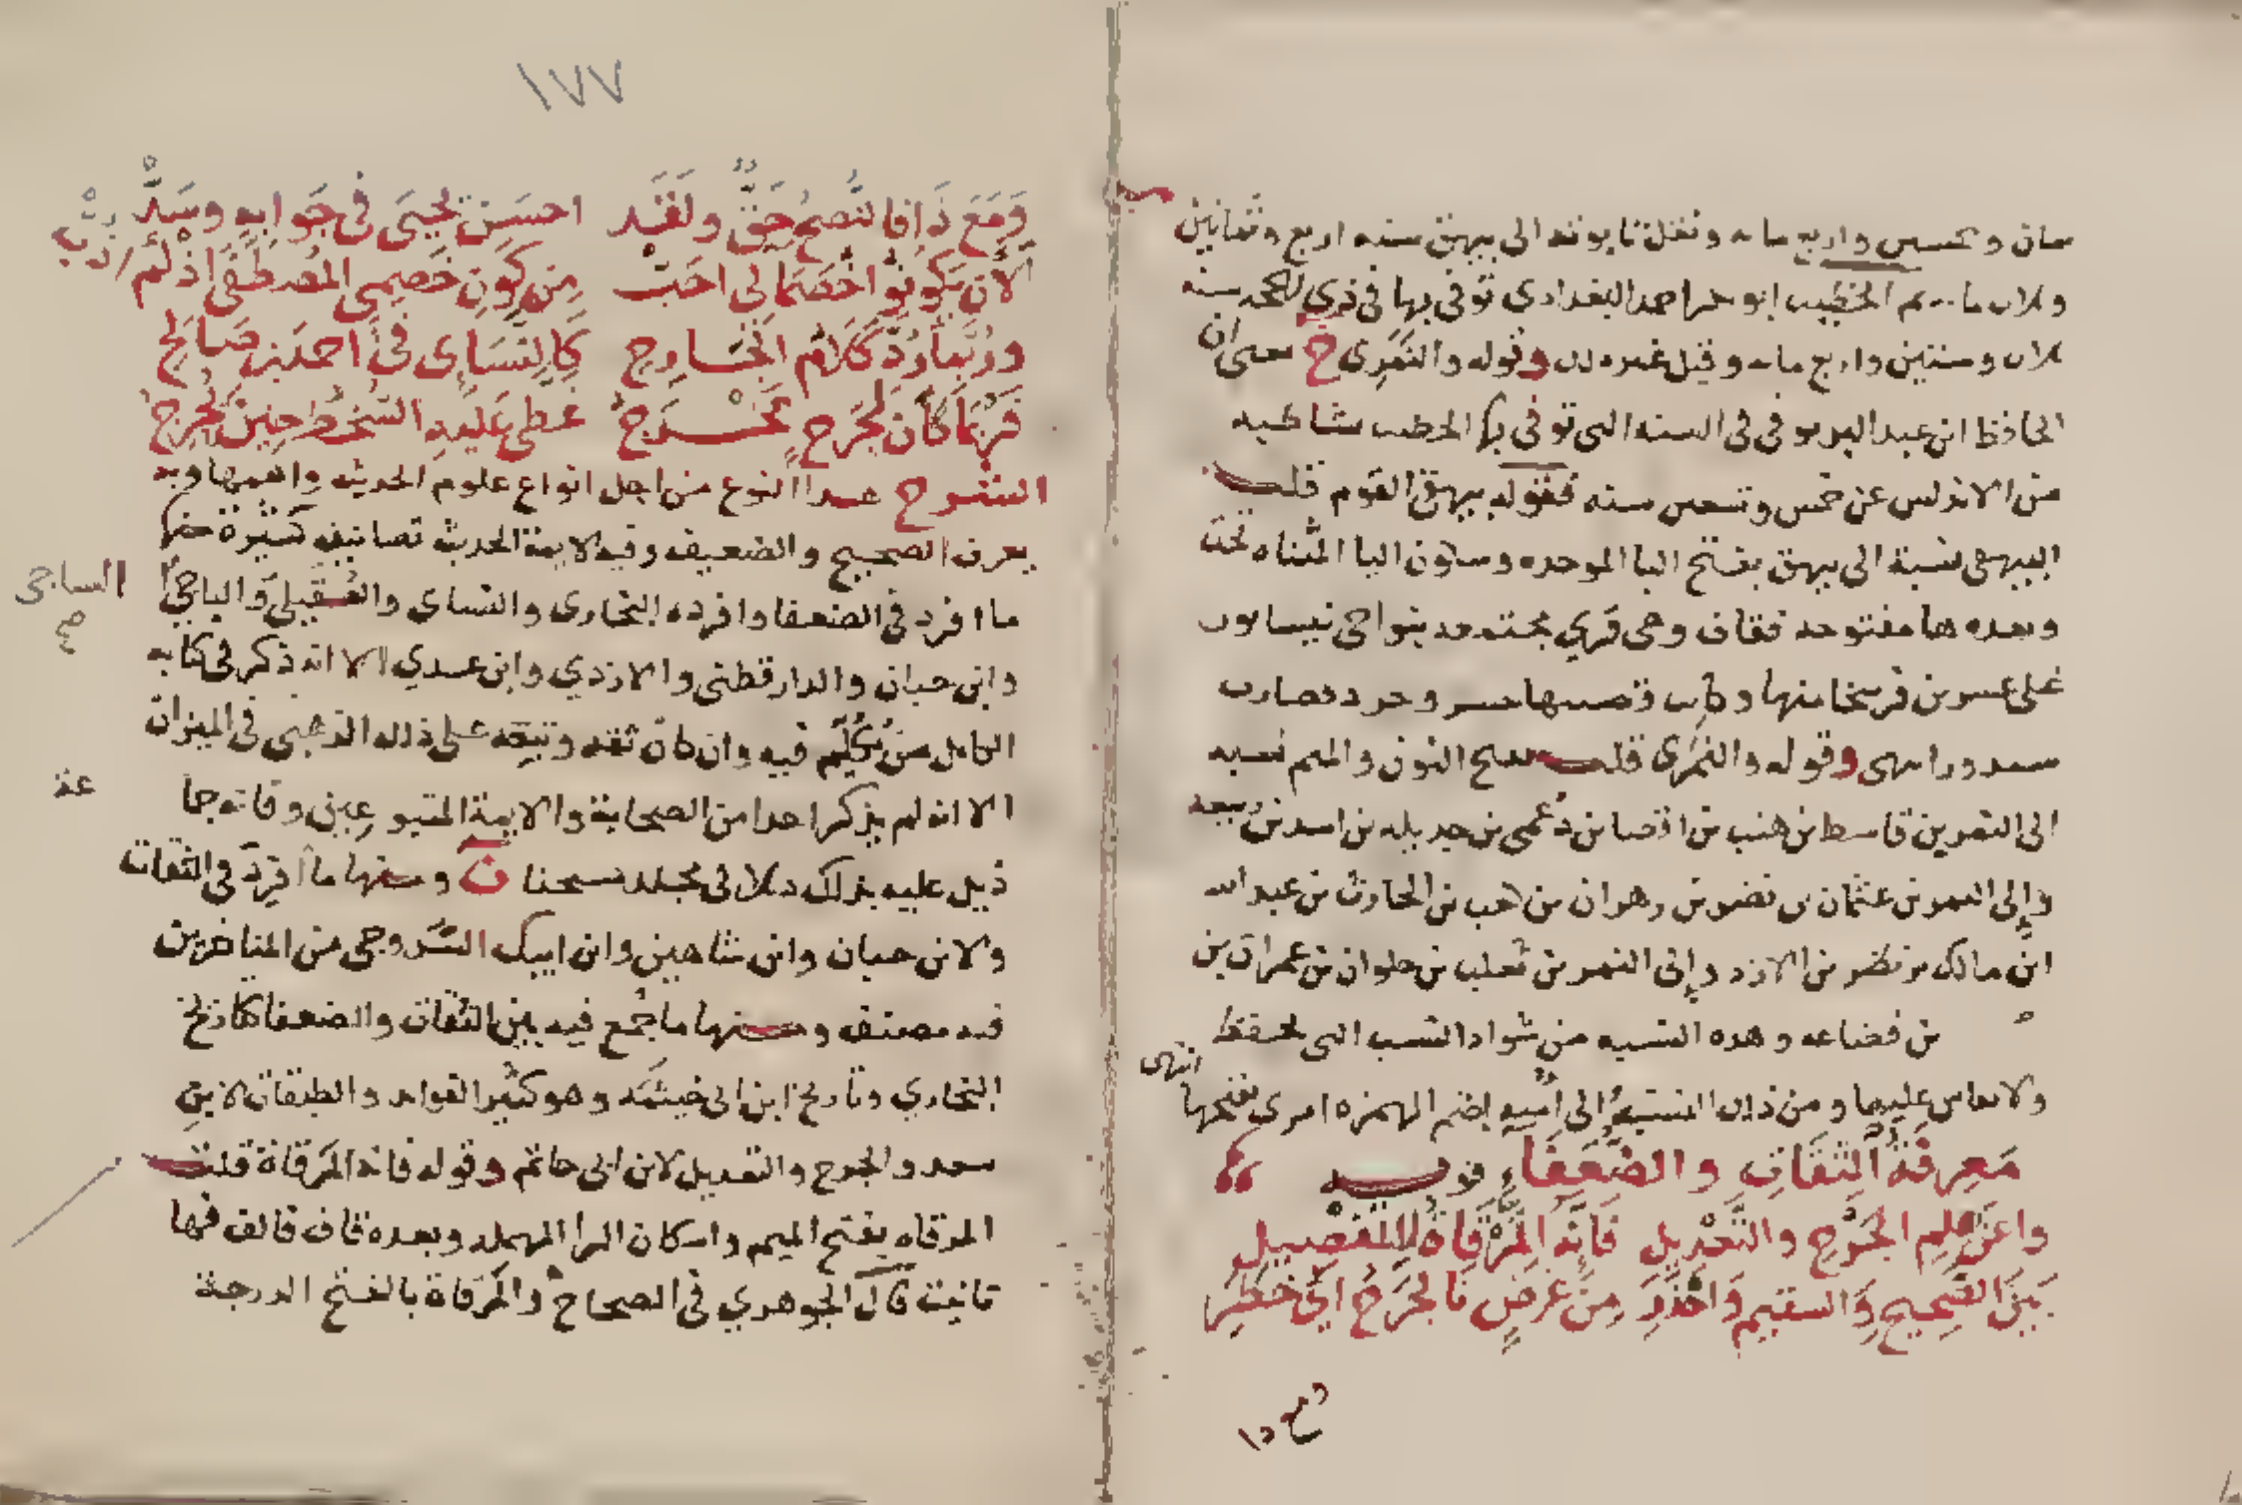 ثمان وخمسين واربع مايه ونقل تابوته الى بيهق سنه اربع وثمانين
وثلاث مايه ثم الخطيب ابو بكر احمد البغدادي توفي بها في ذي الحجه سنه
ثلاث وستين واربع مايه وقيل غير ذلك وقوله والنمري خ يعني ان
الحافظ ابن عبد البر توفي في السنه التي توفي بها الخطيب بشاطبه
من الاندلس عن خمس وتسعين سنه فقوله بيهقي القوم قلت
البيهقي نسبة الى بيهق بفتح البا الموحده وسكون اليا المثناه تحت
وبعده ها مفتوحه فقاف وهي قري مجتمعه بنواحي نيسابور
على عشرين فرسخا منها وكانت قصبتها خسروجرد فصارت
سبزوار انتهى وقوله والنمري قلت بفتح النون والميم نسبه
الى النمر بن قاسط بن هنب بن افصا بن دعمي بن جديله بن اسد بن ربيعه
وإلى النمر بن عثمان بن نصر بن زهران بن كعب بن الحارث بن عبد الله
ابن مالك بن نضر بن الازد وإلى النمر بن ثعلب بن حلوان بن عمران بن
بن قضاعه وهذه النسبه من شواذ النسب التي تحفظ
ولا يقاس عليها ومن ذلك النسبة إلى أمية بضم الهمزه اموي بفتحها
انتهى
مَعرِفَةُ الثِّقَاتِ والضُّعَفَاءِ قوله
واعنَ بعلم الجَرْحِ والتَّعْدِيلِ فَإنَّهُ المَرْقَاةُ لِلتَّفْصِيلِ
بَيْنَ الصَّحِيحِ وَالسقيم وَاحْذَرِ مِنْ غَرَضٍ فالجَرْحُ أيُّ خَطَرِ
١٧٧
وَمَعَ ذَا فالنُّصحُ حَقٌّ ولقَد احسَنَ يحيَى في جَوابِه وسَدّ
لأن يَكُونُوا خُصَمَا لي احَبّ مِن كَونِ خَصمِي المُصطَفَى اذْ لَم أذُبّ
ورُبَّما رُدَّ كَلَامُ الجَارِحِ كَالنَّسَاي في احمَدَ بنِ صَالِحِ
فَرُبَّمَا كَانَ لِجَرحٍ مَخْرَجُ غطى عَلَيهِ السُّخطُ حِينَ يُحرجُ
الشرح هذا النوع من اجل انواع علوم الحديث واهمها وبه
يعرف الصحيح والضعيف وفيه لايمة الحديث تصانيف كثيرة منها
ما افرد في الضعفا وافرده البخاري والنساي والعقيلي والباجي
الساجي
صح
وابن حبان والدارقطني والازدي وابن عدي الا انه ذكر في كتابه
الكامل من تُكُلِّم فيه وان كان ثقه وتبعه على ذلك الذهبي في الميزان
الا انه لم يذكر احدا من الصحابة والايمة المتبوعين وفاته جماعة
ذيل عليه بذلك ذيلا في مجلد شيخنا ن ومنها ما افرد في الثقات
ولابن حبان وابن شاهين وابن ايبك السَّروجي من المتاخرين
فيه مصنف ومنها ما جمع فيه بين الثقات والضعفا كتاريخ
البخاري وتاريخ ابن ابي خيثمة وهو كثير الفوايد والطبقات لابن
سعد والجرح والتعديل لابن ابي حاتم وقوله فانه المَرقاة قلت
المرقاه بفتح الميم واسكان الرا المهمله وبعده قاف فالف فها
تانيث قال الجوهري في الصحاح والمرقاة بالفتح الدرجة